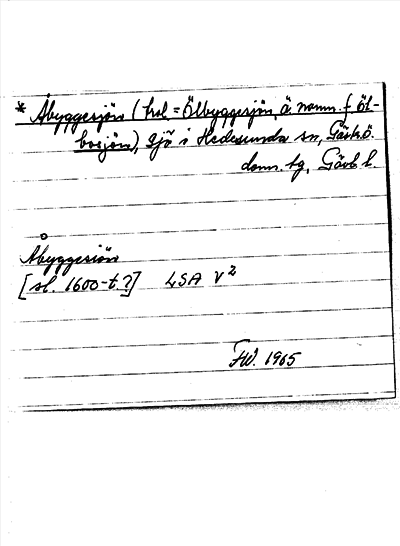 * Åbyggesjön (trol. = Ölbyggesjön, ä. namn f. Öl-
bosjön), sjö i Hedesunda sn, Gästr.ö.
doms. tg, Gävl. l.
Åbyggesiön
[sl. 1600-t.?] LSA V²
FW. 1965